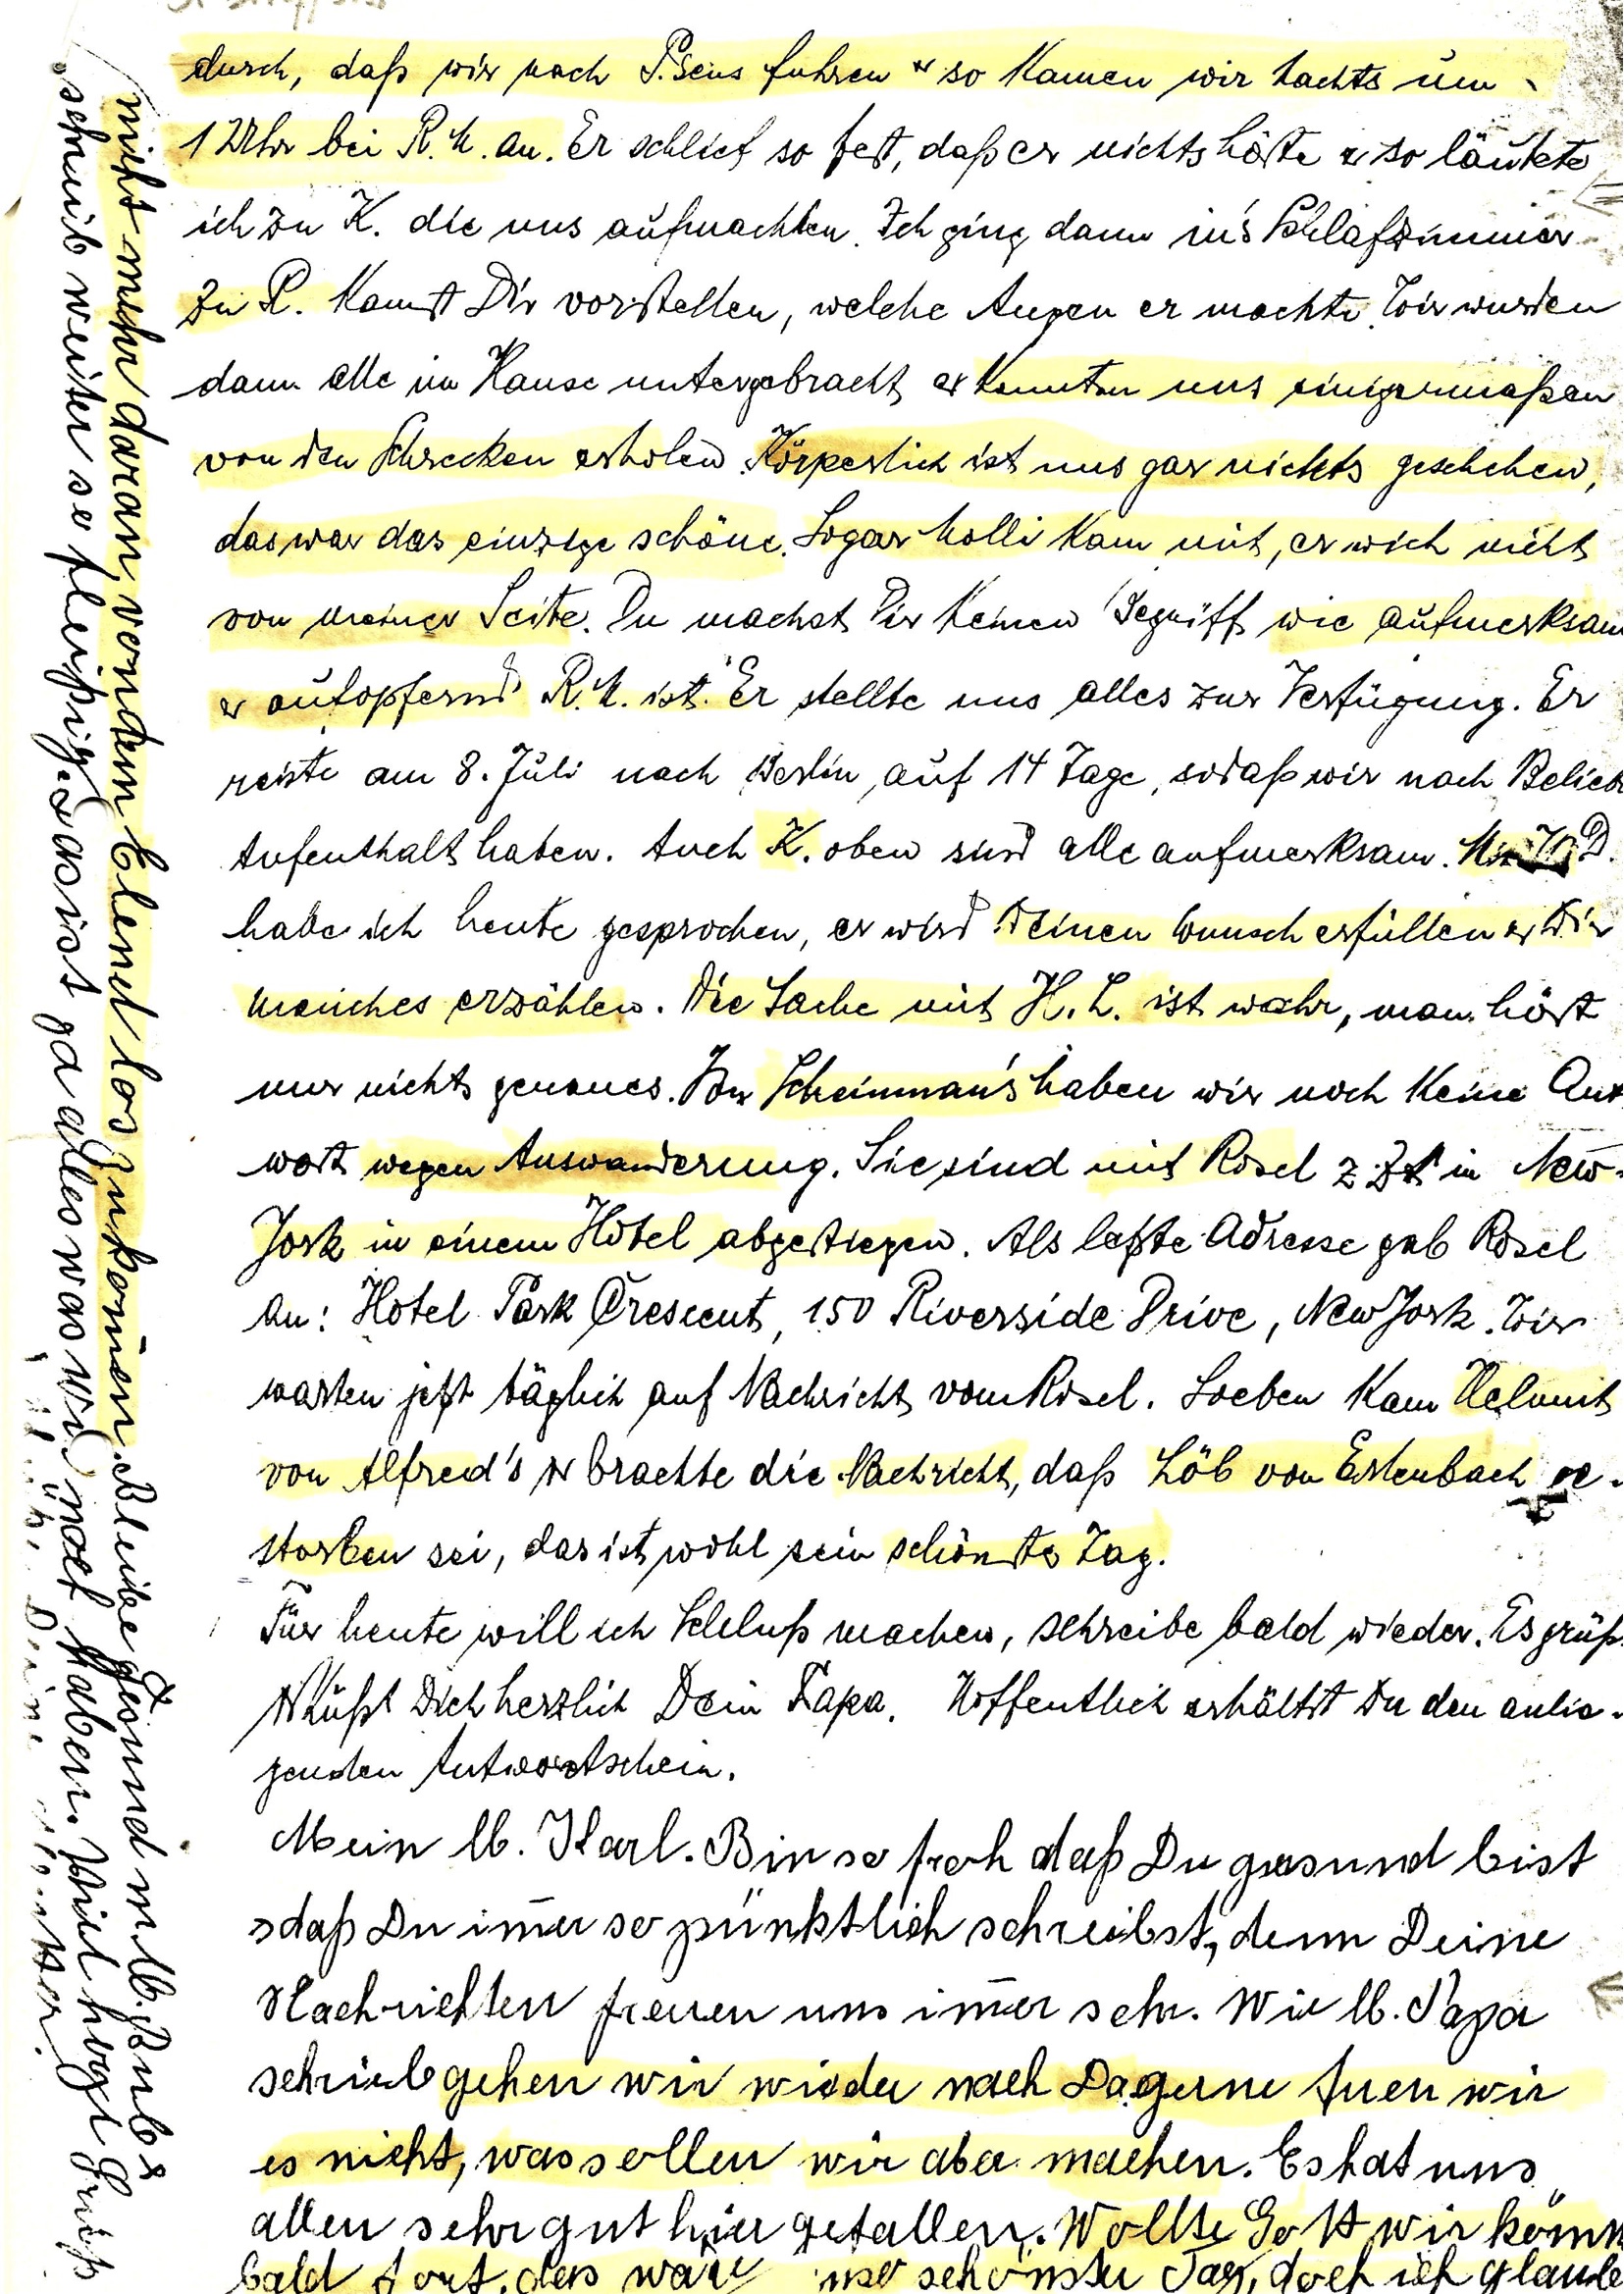 durch, daß wir nach P.sens fuhren & so kamen wir nachts um
1 Uhr bei R. M. an. Er schlief so fest, daß er nichts hörte & so läutete
ich zu K. die uns aufmachten. Ich ging dann in's Schlafzimmer
zu R. Kannst Dir vorstellen, welche Augen er machte. Wir wurden
dann alle im Hause untergebracht & konnten uns einigermaßen
von den Schrecken erholen. Körperlich ist uns gar nichts geschehen,
das war das einzige schöne. Sogar Molli kam mit, er wich nicht
von meiner Seite. Du machst Dir keinen Begriff wie aufmerksam
& aufopfernd R. M. ist. Er stellte uns alles zur Verfügung. Er
reiste am 8. Juli nach Berlin, auf 14 Tage, sodaß wir nach Belieb
Aufenthalt haben. Auch K. oben sind alle aufmerksam. D.
habe ich heute gesprochen, er wird Deinen Wunsch erfüllen & Dir
manches erzählen. Die Sache mit H. L. ist wahr, man hört
nur nichts genaues. Von Scheinman's haben wir noch keine Ant
wort wegen Auswanderung. Sie sind mit Rosel z. Zt in New-
York in einem Hotel abgestiegen. Als letzte Adresse gab Rosel
an: Hotel Park Crescent, 150 Riverside Drive, New York. Wir
warten jetzt täglich auf Nachricht von Rosel. Soeben kam Helmut
von Alfred's & brachte die Nachricht, daß Löb von Erlenbach ge-
storben sei, das ist wohl sein schönster Tag.
Für heute will ich Schluß machen, schreibe bald wieder. Es grüß
& küßt Dich herzlich Dein Papa. Hoffentlich erhältst Du den anlie-
genden Antwortschein.
Mein lb. Karl. Bin so froh daß Du gesund bist
& daß Du im̄er so pünktlich schreibst, denn Deine
Nachrichten freuen uns im̄er sehr. Wie lb. Papa
schrieb gehen wir wieder nach D. gerne tuen wir
es nicht, was sollen wir aber machen. Es hat uns
allen sehr gut hier gefallen. Wollte Gott wir könn
bald fort, das wäre unser schönster Tag, doch ich glaube
nicht mehr daran, von dem Elend los zu kom̄en. Bleibe gesund m. lb. Bub &
schreib weiter so fleißig. Das ist ja alles was wir noch haben. Viel herzl Grüß